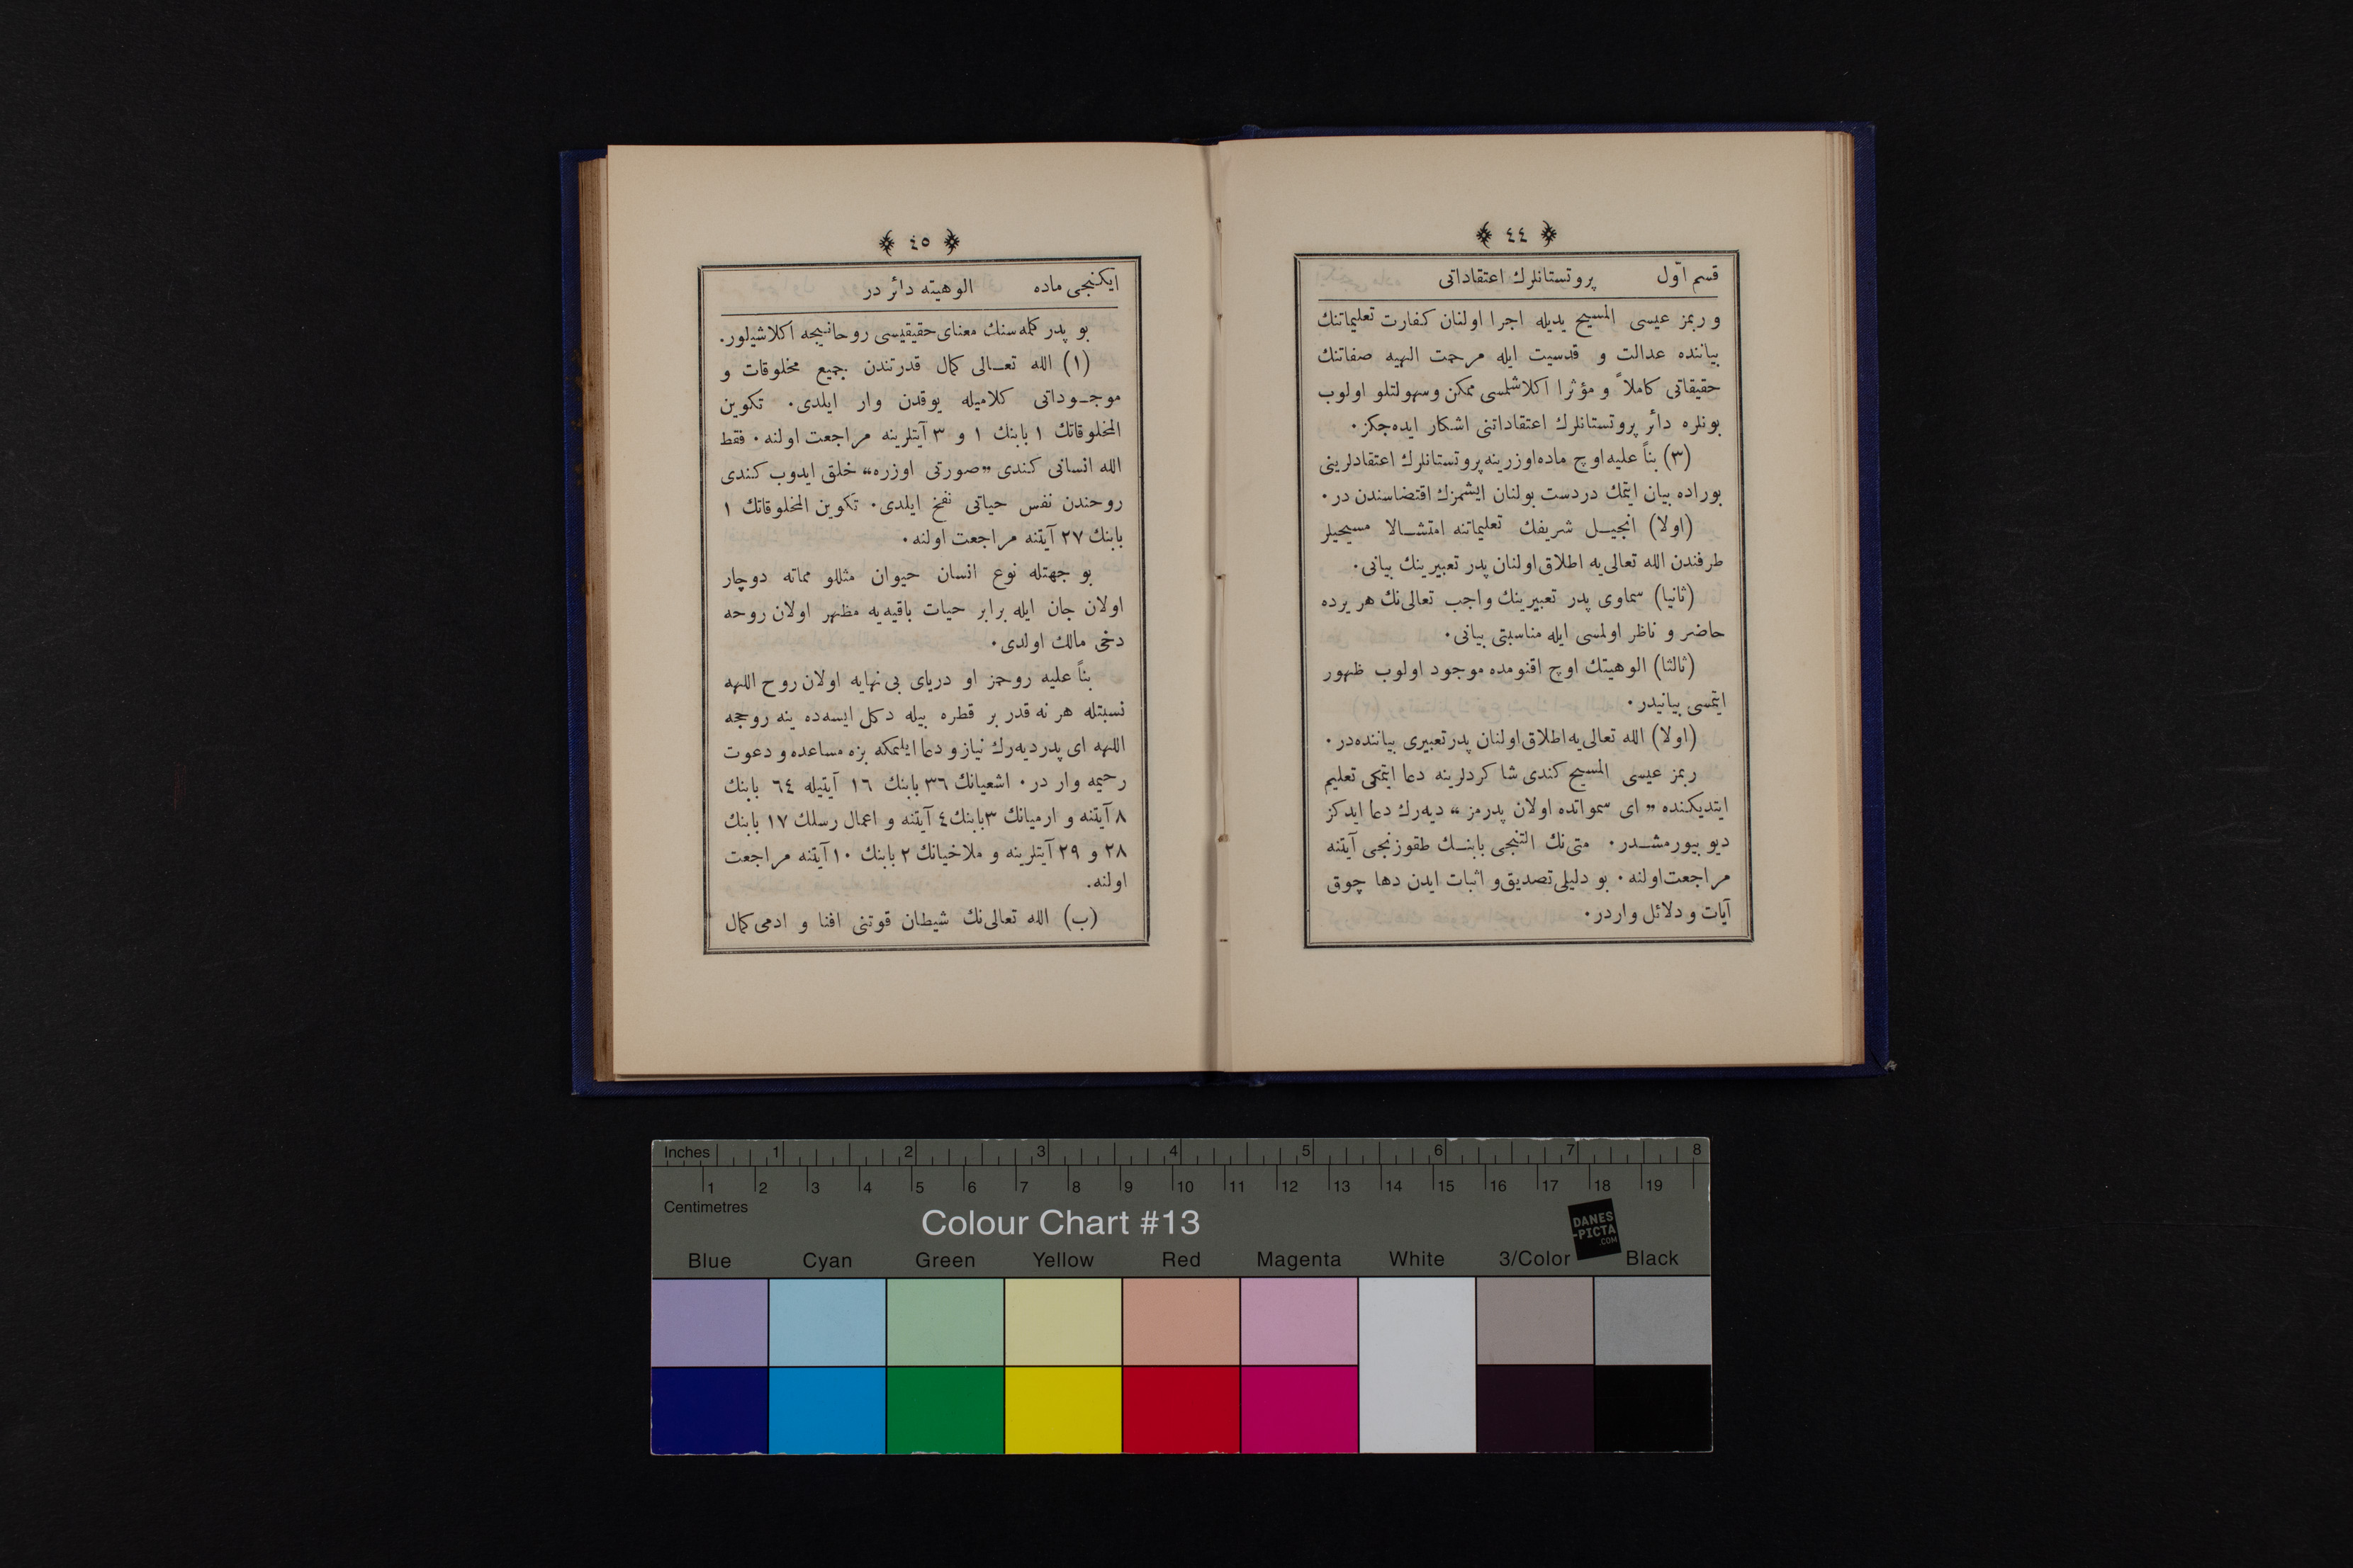 ﴿ ٤٤ ﴾
قسم اوّل پروتستانلرك اعتقاداتى
و ربمز عيسى المسيح يديله اجرا اولنان كفارت تعليماتنك
بياننده عدالت و قدسيت ايله مرحمت الهيه صفاتنك
حقيقاتى كاملاً و مؤثرا اكلاشلمسى ممكن وسهولتلو اولوب
بونلره دائر پروتستانلرك اعتقاداتنى اشكار ايده‌جكز٠
(٣) بناً عليه اوچ ماده اوزرينه پروتستانلرك اعتقادلرينى
بوراده بيان ايتمك دردست بولنان ايشمزك اقتضاسندن در٠
(اولا) انجيـل شريفك تعليماتنه امتثـالا مسيحيلر
طرفندن الله تعالى‌يه اطلاق اولنان پدر تعبيرينك بيانى٠
(ثانيا) سماوى پدر تعبيرينك واجب تعالى‌نك هر يرده
حاضر و ناظر اولمسى ايله مناسبتى بيانى٠
(ثالثا) الوهيتك اوچ اقنومده موجود اولوب ظهور
ايتمسى بيانيدر٠
(اولا) الله تعالى‌يه اطلاق اولنان پدر تعبيرى بياننده‌در٠
ربمز عيسى المسيح كندى شا كردلرينه دعا ايتمكى تعليم
ايتديكنده „ اى سمواتده اولان پدرمز “ ديه‌رك دعا ايدكز
ديو بيورمشـدر٠ متى‌نك التنجى بابنـك طقوزنجى آيتنه
مراجعت اولنه٠ بو دليلى تصديق و اثبات ايدن دها چوق
آيات و دلائل واردر٠
﴿ ٤٥ ﴾
ايكنجى ماده الوهيته دائر در
بو پدر كلمه‌سنك معناى حقيقيسى روحانيجه اكلاشيلور.
(١) الله تعـالى كمال قدرتندن جميع مخلوقات و
موجـوداتى كلاميله يوقدن وار ايلدى٠ تكوين
المخلوقاتك ١ بابنك ١ و ٣ آيتلرينه مراجعت اولنه٠ فقط
الله انسانى كندى „صورتى اوزره“ خلق ايدوب كندى
روحندن نفس حياتى نفخ ايلدى٠ تكوين المخلوقاتك ١
بابنك ٢٧ آيتنه مراجعت اولنه٠
بو جهتله نوع انسان حيوان مثللو مماته دوچار
اولان جان ايله برابر حيات باقيه‌يه مظهر اولان روحه
دخى مالك اولدى٠
بناً عليه روحمز او درياى بى نهايه اولان روح اللهه
نسبتله هر نه قدر بر قطره بيله دكل ايسه‌ده ينه روحجه
اللهه اى پدر ديه‌رك نياز و دعا ايلمكه بزه مساعده و دعوت
رحيمه وار در٠ اشعيانك ٣٦ بابنك ١٦ آيتيله ٦٤ بابنك
٨ آيتنه و ارميانك ٣ بابنك ٤ آيتنه و اعمال رسلك ١٧ بابنك
٢٨ و ٢٩ آيتلرينه و ملاخيانك ٢ بابنك ١٠ آيتنه مراجعت
اولنه.
(ب) الله تعالى‌نك شيطان قوتنى افنا و ادمى كمال
Inches 1 2 3 4 5 6 7 8
1 2 3 4 5 6 7 8 9 10 11 12 13 14 15 16 17 18 19
Centimetres
Colour Chart #13
DANES
-PICTA
.COM
Blue Cyan Green Yellow Red Magenta White 3/Color Black